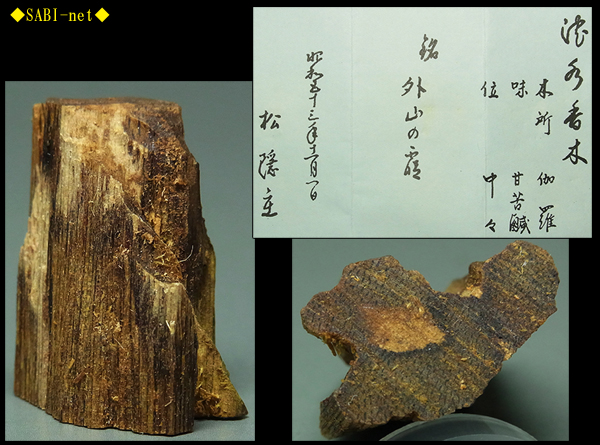 ◆SABI-net◆
沈水香木
木所 伽羅
味 甘苦鹹
位 中々
銘 外山の霞
昭和五十三年十一月一日
松隠主